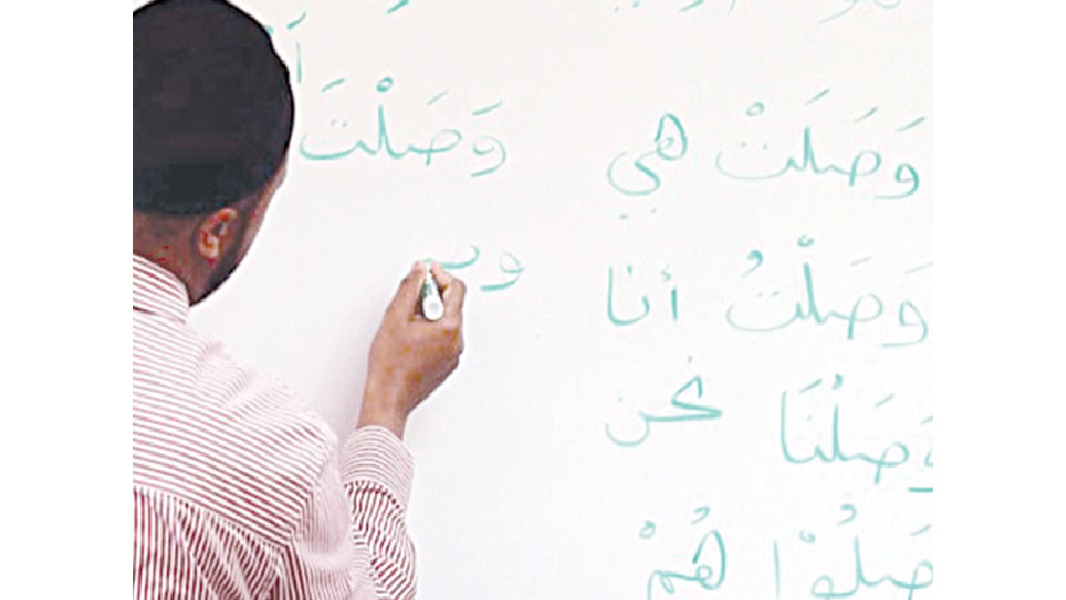 وَصَلَتْ هي وَصَلْتَ
وَصَلْتُ أنا وصـ
وَصَلْنَا نحن
صَلُوْا هُمْ